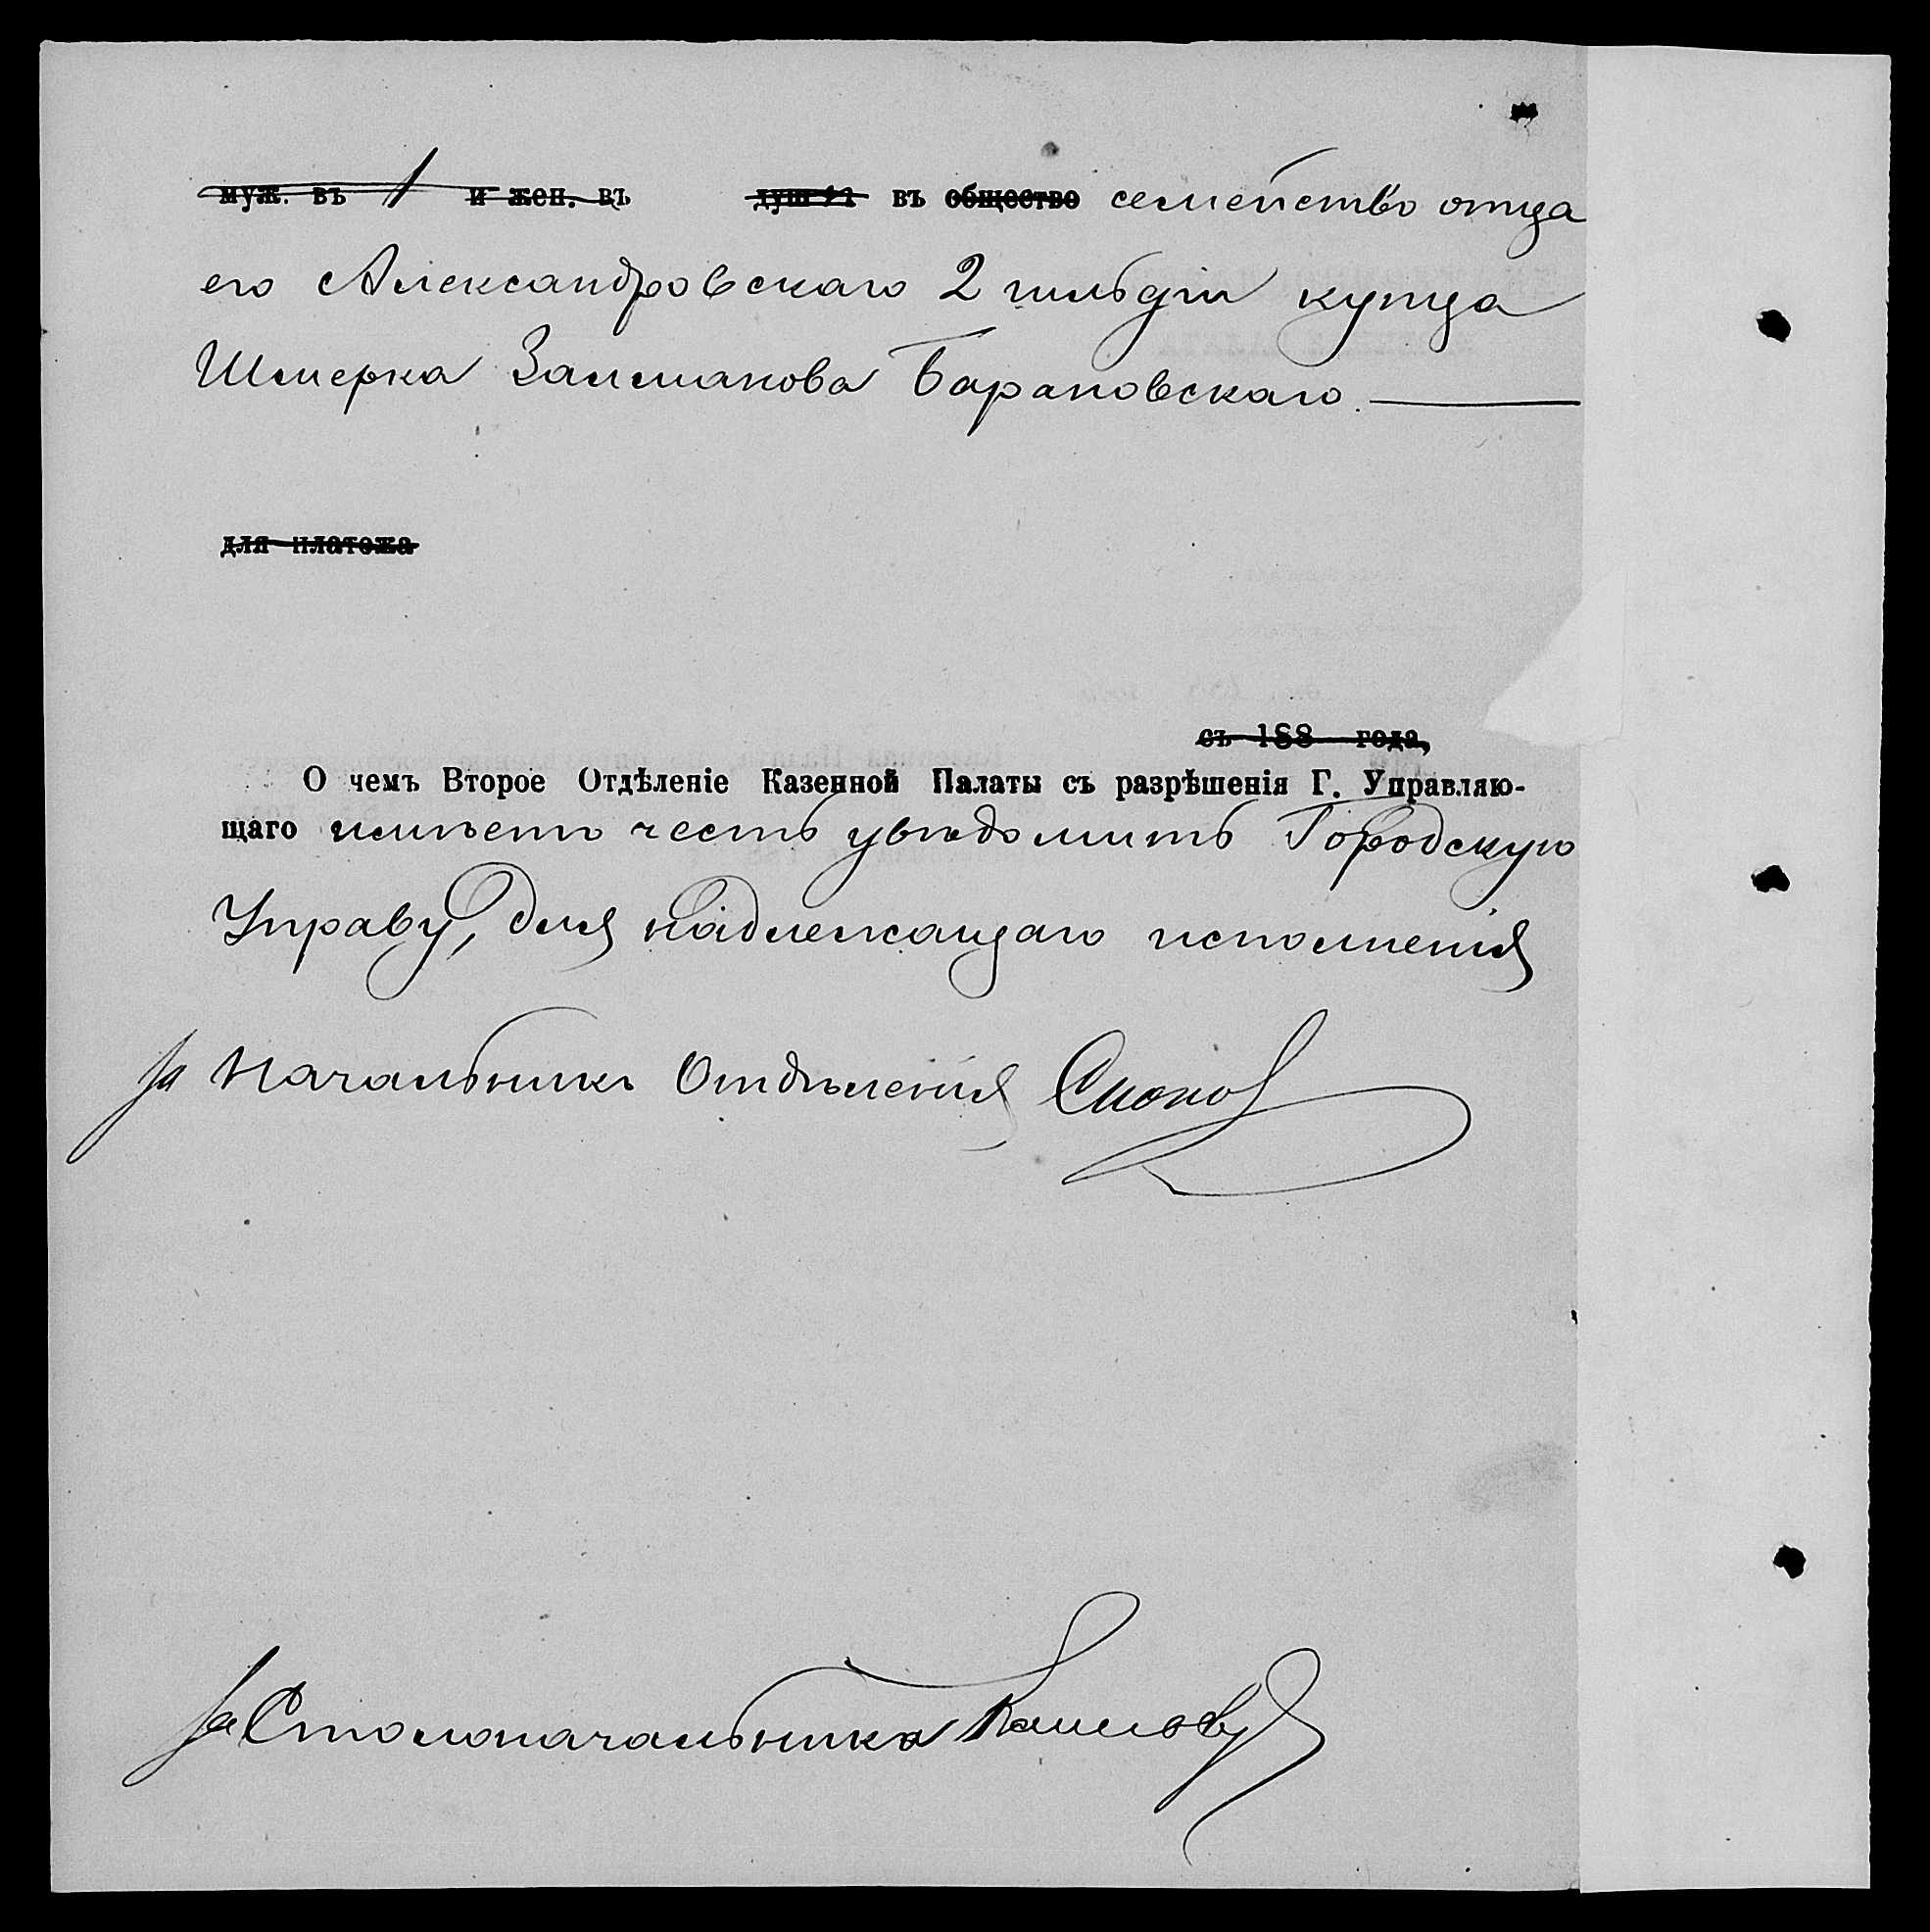 муж. въ 1 и жен. въ душ въ общество семейство отца
его Александровскаго 2 гильдіи купца
Шмерка Залманова Барановскаго.
для платежа
съ 188 года,
О чемъ Второе Отдѣленіе Казенной Палаты съ разрѣшенія Г. Управляю-
щаго имѣетъ честь увѣдомить Городскую
Управу, для надлежащаго исполненія
За Начальникъ Отдѣленія
За Столоначальника